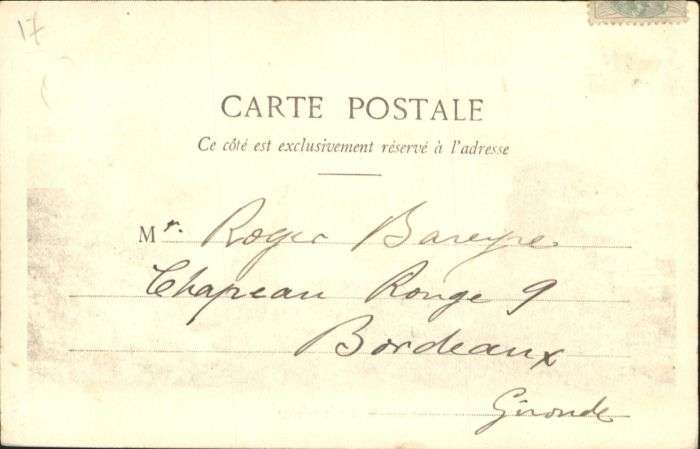 17
CARTE POSTALE
Ce côté est exclusivement réservé à l'adresse
Mr. Roger Bareyre
Chapeau Rouge 9
Bordeaux
Gironde